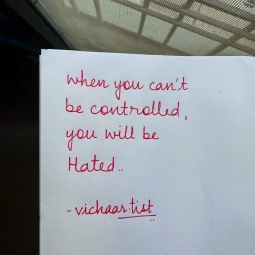 when you can't
be controlled,
you will be
Hated..
- vichaartist